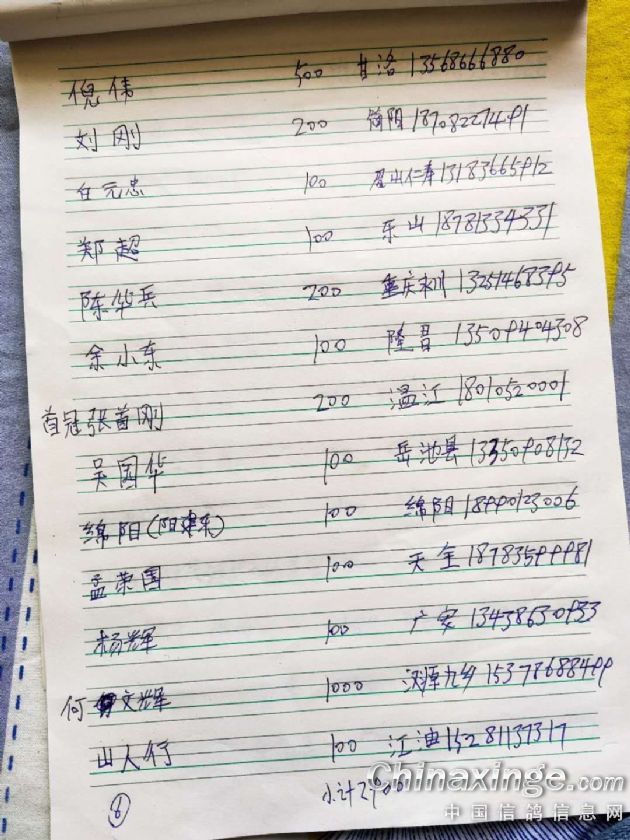 倪伟 500 甘洛 13568666880
刘刚 200 简阳 18708227491
白元忠 100 眉山仁寿 13183665912
郑超 100 乐山 18781334331
陈华兵 200 重庆永川 13251468395
余小东 100 隆昌 13509404308
首冠张首刚 200 温江 18010520001
吴国华 100 岳池县 13350908132
绵阳(阳建东) 100 绵阳 18990123006
孟荣国 100 天全 18783599981
杨辉 100 广安 13438630933
何文辉 1000 汉源九乡 15378688499
山人行 100 江油 15281137317
⑥ 小计 2900
Chinaxinge.com
中国信鸽信息网